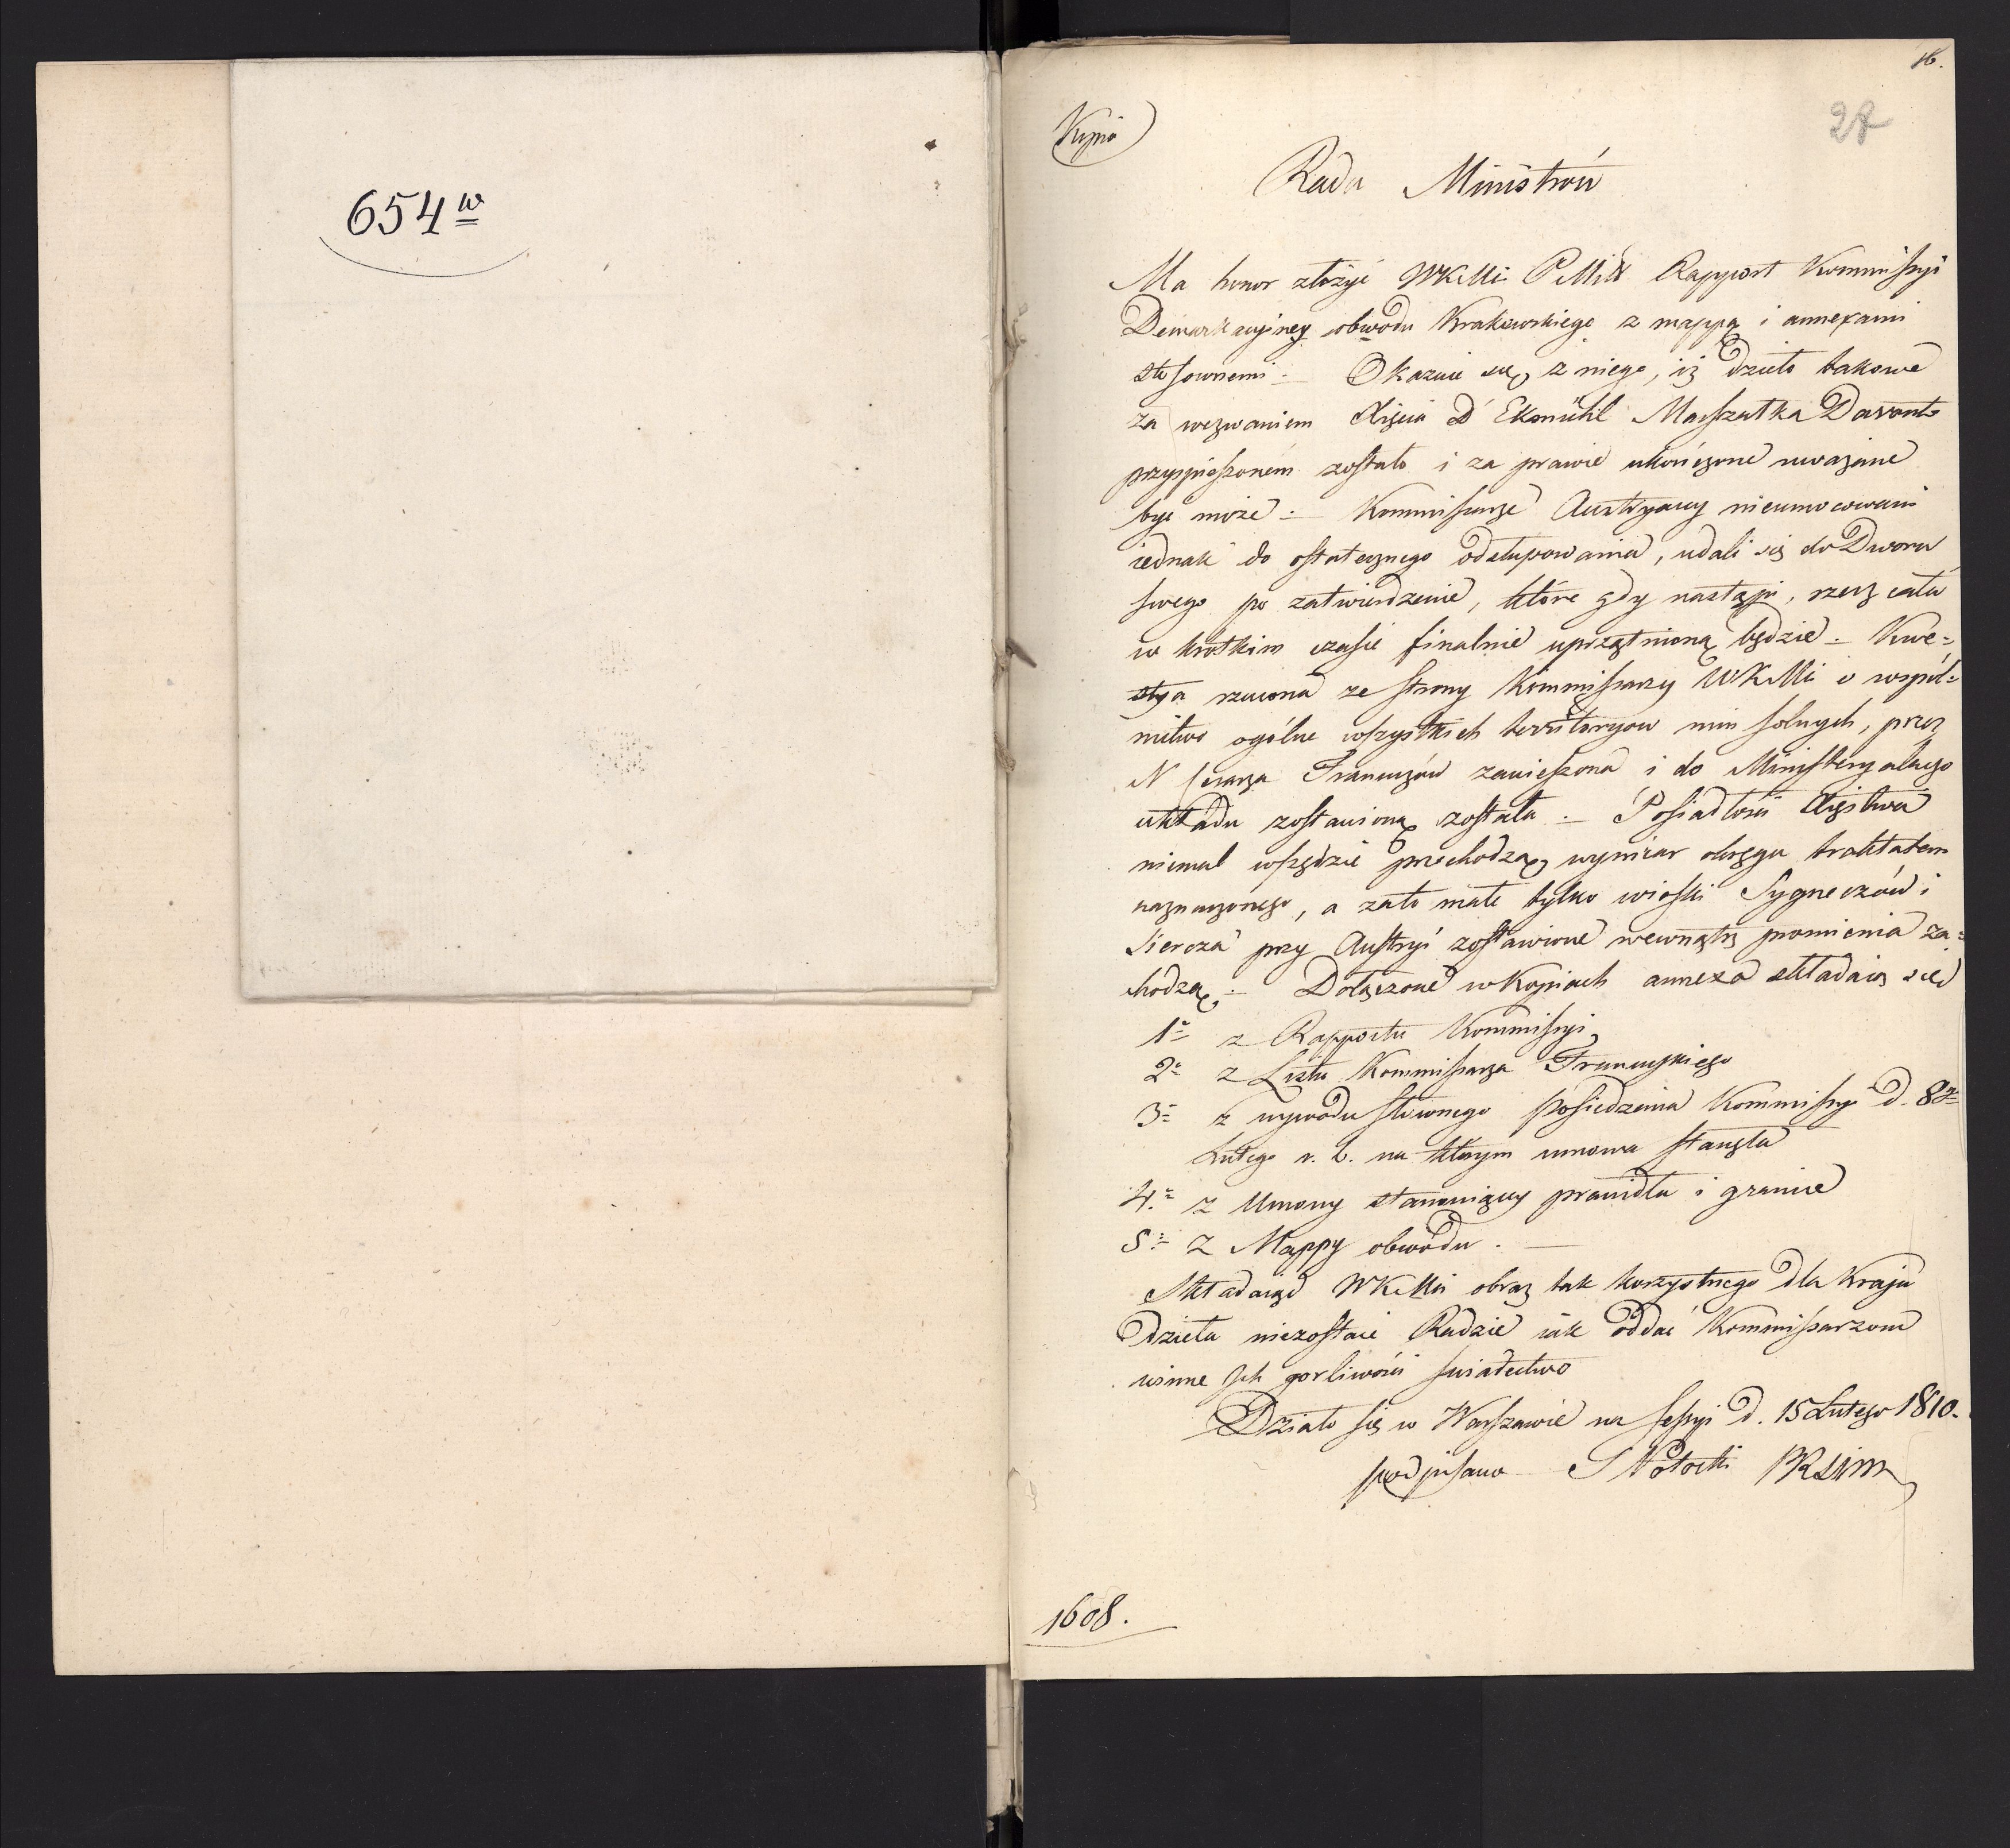 654 w
16.
28
Kopia
Rada Ministrów
Ma honor złożyć WKMci PMMu Rapport Kommissyi
Demarkacyiney obwodu Krakowskiego z mappą i annexami
stosownemi :— Okazuie się z niego, iż dzieło takowe
za wezwaniem Xięcia D'Ekmühl Marszałka Davout
przyspieszonem zostało i za prawie ukończone uważane
być może :— Kommissarze Austryaccy nieumocowani
iednak do ostatecznego odstępowania, udali się do Dworu
swego po zatwierdzenie, które gdy nastąpi, rzecz cała
w krótkim czasie finalnie uprzątnioną będzie :— Kwe=
stya rzucona ze strony Kommissarzy WKMci o wspól=
nictwo ogólne wszystkich territoryow min solnych, przez
N Cesarza Francuzów zawieszona i do Ministeryalnego
układu zostawioną została :— Posiadłości Xięstwa
niemal wszędzie przechodzą wymiar okręgu traktatem
naznaczonego, a zato małe tylko wioski Sygneczów i
Siercza przy Austryi zostawione wewnątrz promienia za=
chodzą :— Dołączone w Kopiach annexa składaią się
1° z Rapportu Kommissyi
2° z Listu Kommissarza Francuzkiego
3° z wywodu słownego posiedzenia Kommissyi d. 8go
Lutego r. b. na którym umowa stanęła
4° z Umowy stanowiącey prawidła i granice
5° z Mappy obwodu . —
Składaiąc WKMci obraz tak korzystnego dla Kraju
dzieła niezostaie Radzie iak oddać Kommissarzom
winne Ich gorliwości świadectwo
Działo się w Warszawie na sessyi d. 15 Lutego 1810.
podpisano S Potocki PRSiM
1608.